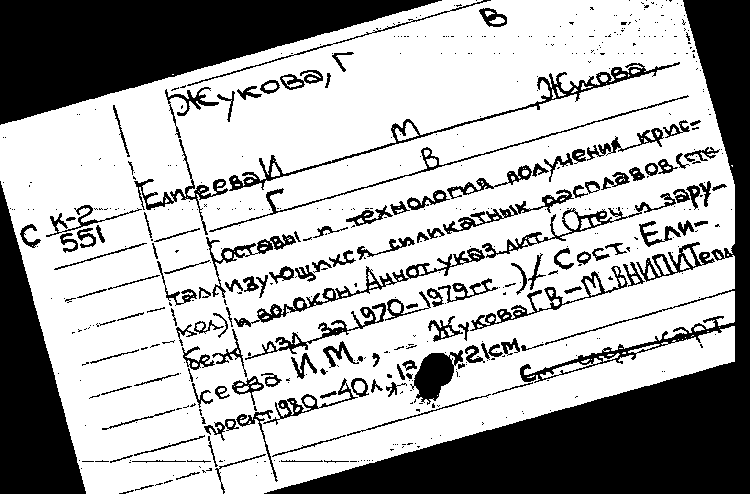 В
Жукова, Г
Елисеева, И М , Жукова,
Г В
С К-2
551
Составы и технология получения крис-
таллизующихся силикатных расплавов (сте-
кол) и волокон: Аннот. указ. лит. (Отеч и зару-
беж. изд. за 1970-1979 гг. ) / Сост. Ели-
сеева И.М., Жукова Г.В - М: ВНИПИТепло
проект, 1980. - 40 л.; х21 см.
См. след. карт